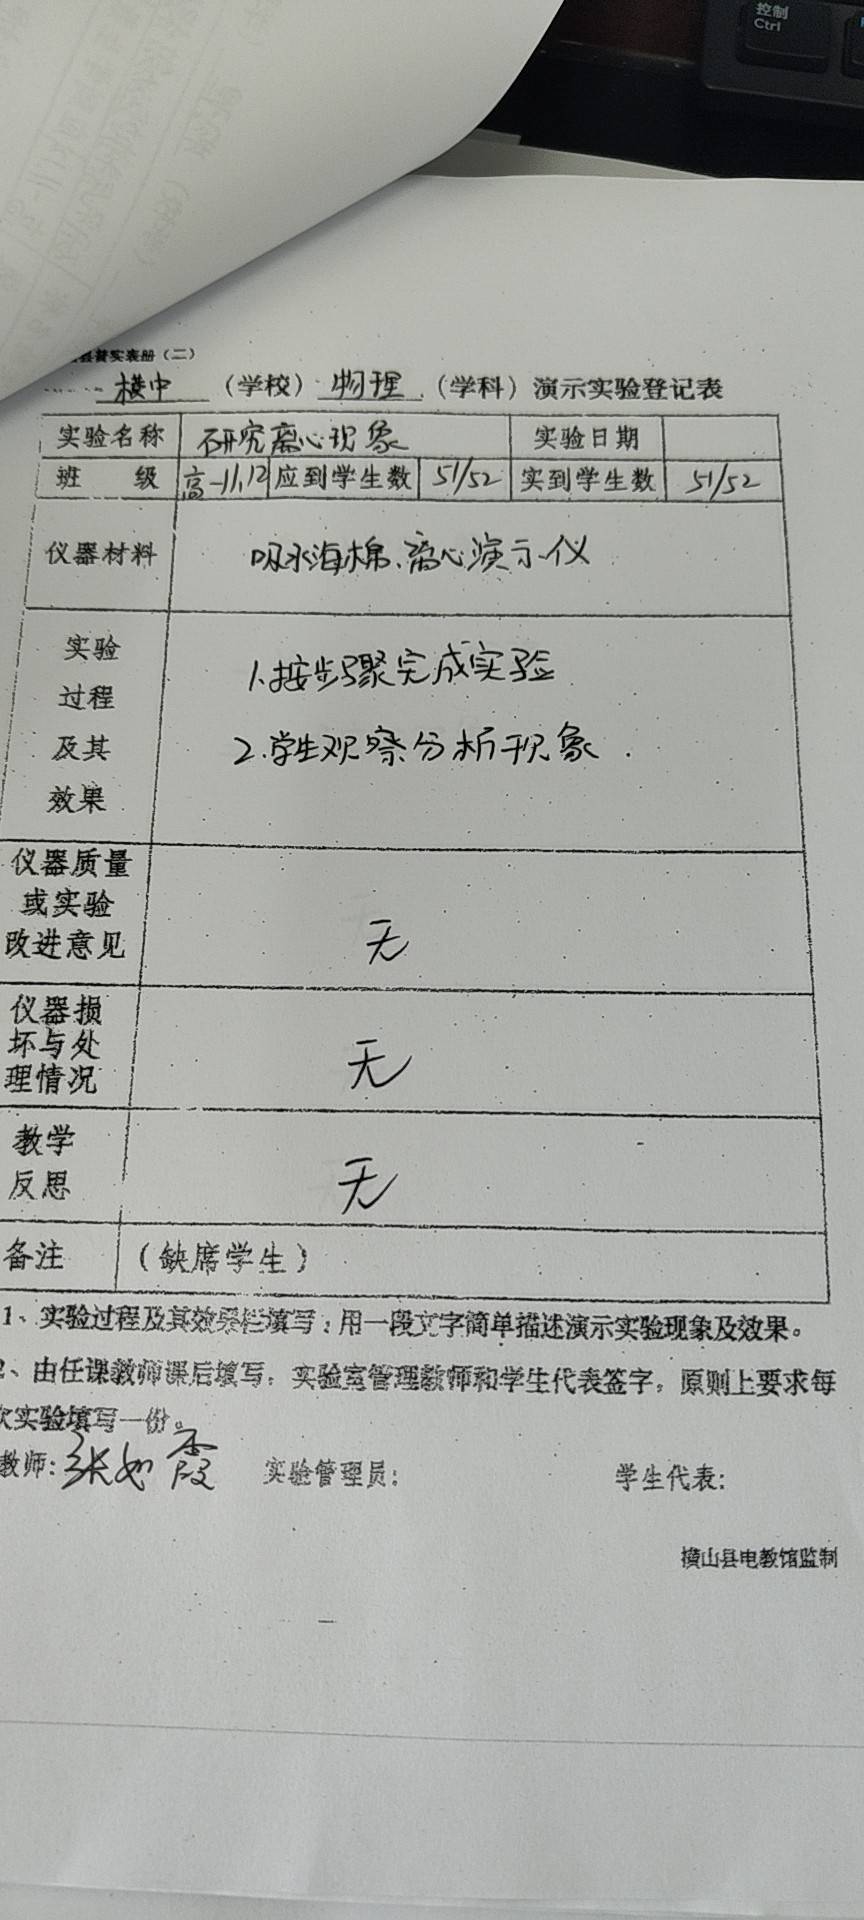 控制
Ctrl
县普实表册（二）
横中（学校）物理（学科）演示实验登记表
实验名称 研究离心现象 实验日期
班 级 高一11,12 应到学生数 51/52 实到学生数 51/52
仪器材料 吸水海棉、离心演示仪
实验
过程
及其
效果
1.按步骤完成实验
2.学生观察分析现象.
仪器质量
或实验
改进意见
无
仪器损
坏与处
理情况
无
教学
反思
无
备注 （缺席学生）
1、实验过程及其效果栏填写：用一段文字简单描述演示实验现象及效果。
2、由任课教师课后填写，实验室管理教师和学生代表签字，原则上要求每
次实验填写一份。
教师: 张如霞 实验管理员: 学生代表:
横山县电教馆监制